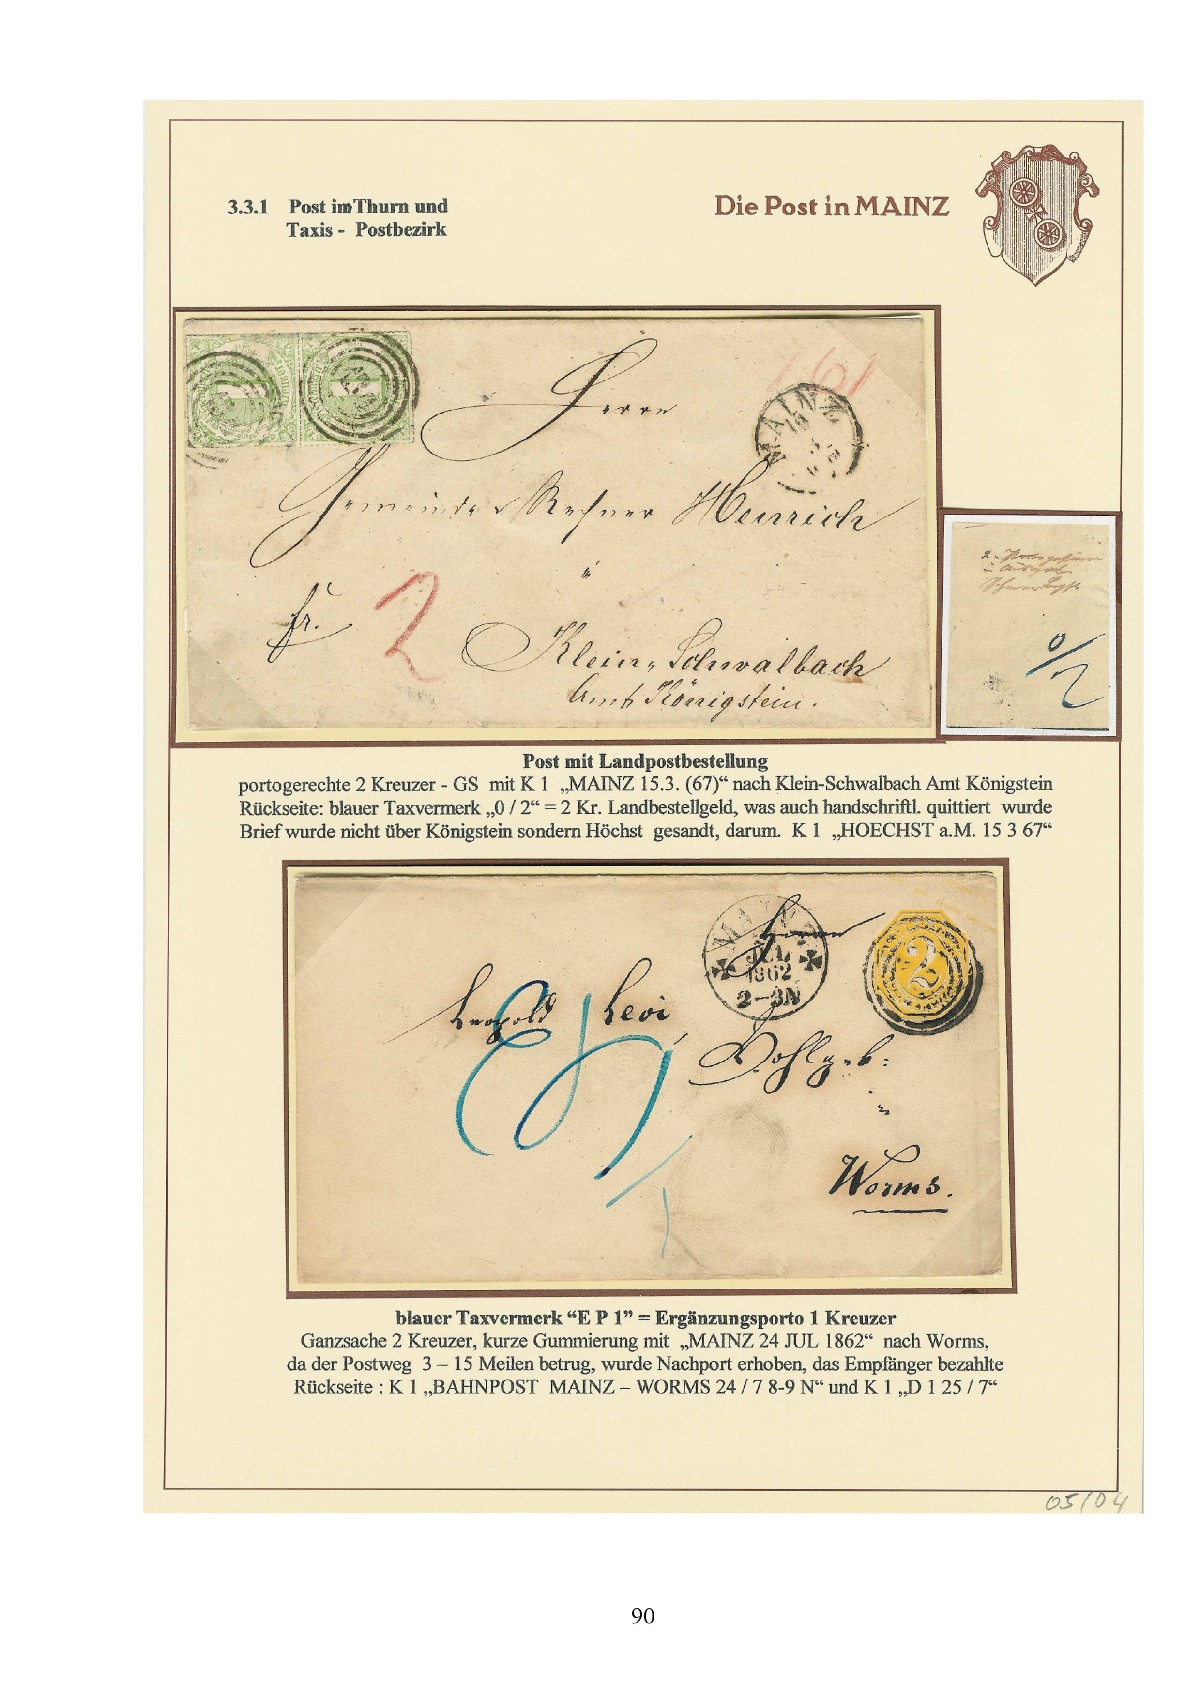 3.3.1 Post im Thurn und
Taxis - Postbezirk
Die Post in MAINZ
161
MAINZ
15
Herrn
Gemeinde Rechner Heinrich
fr.
2
Klein-Schwalbach
Amt Königstein.
0/2
Post mit Landpostbestellung
portogerechte 2 Kreuzer - GS mit K 1 „MAINZ 15.3. (67)“ nach Klein-Schwalbach Amt Königstein
Rückseite: blauer Taxvermerk „0 / 2“ = 2 Kr. Landbestellgeld, was auch handschriftl. quittiert wurde
Brief wurde nicht über Königstein sondern Höchst gesandt, darum. K 1 „HOECHST a.M. 15 3 67“
MAINZ
JUL
1862
2-3N
2
Herrn
Leopold Levi,
Wohlgeb:
in
Worms.
blauer Taxvermerk “E P 1” = Ergänzungsporto 1 Kreuzer
Ganzsache 2 Kreuzer, kurze Gummierung mit „MAINZ 24 JUL 1862“ nach Worms,
da der Postweg 3 – 15 Meilen betrug, wurde Nachport erhoben, das Empfänger bezahlte
Rückseite : K 1 „BAHNPOST MAINZ – WORMS 24 / 7 8-9 N“ und K 1 „D 1 25 / 7“
05/04
90